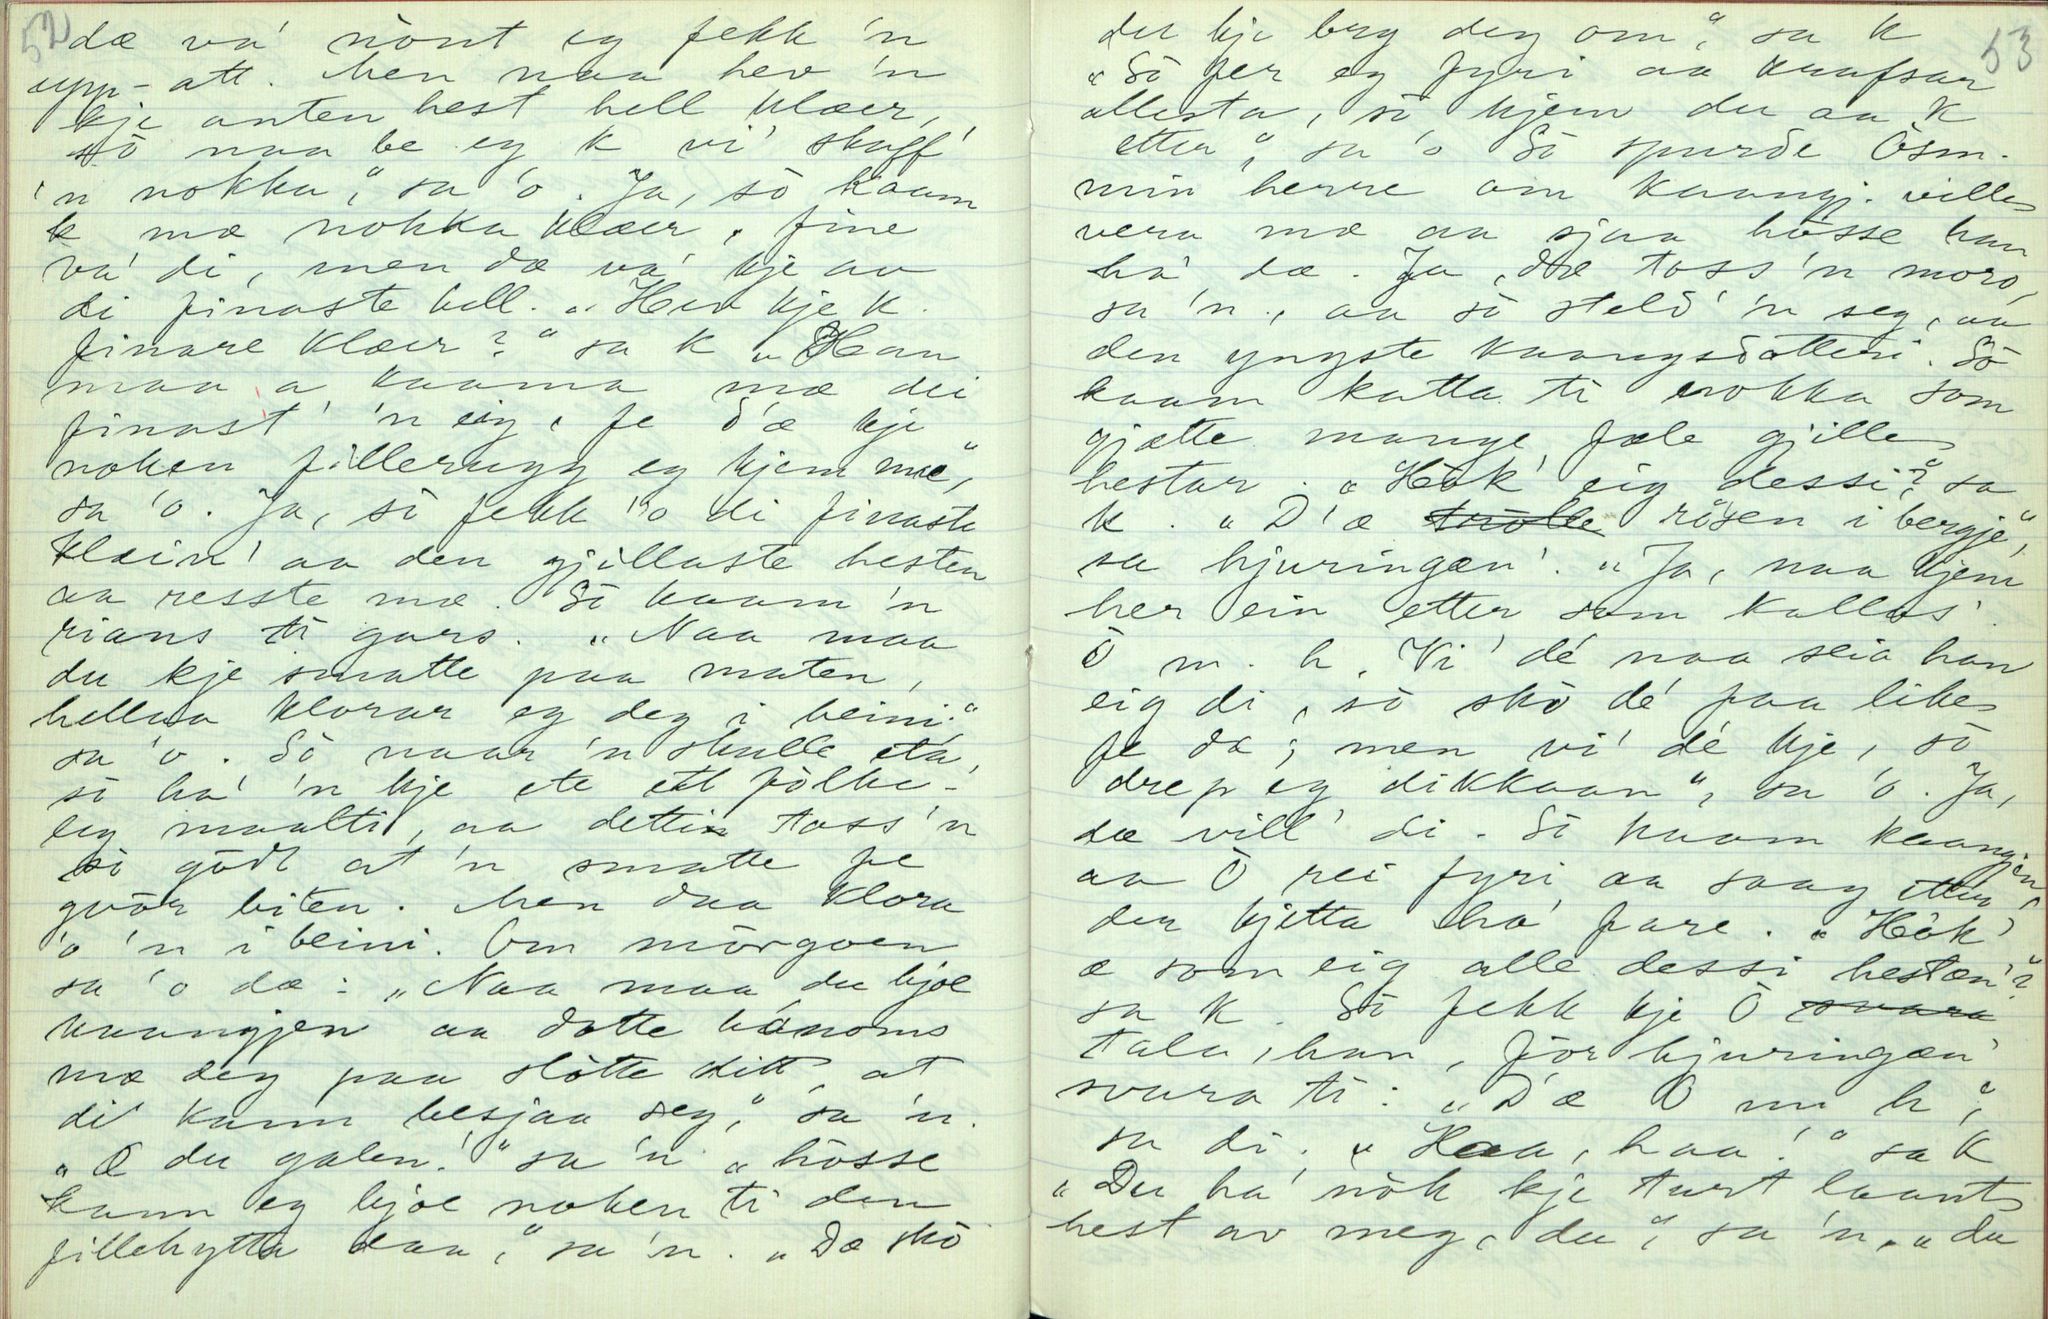 52
dæ va' nönt eg fekk 'n
upp-att. Men naa hev 'n
kje anten hest hell klæer,
sö naa be eg k vi' skaff'
'n nokka," sa 'o. Ja, sö kaam
k mæ nokka klæer, fine
va' di, men dæ va' kje av
di finaste hell. "Hev kje k.
finare klæer?" sa k "Han
maa a kaama mæ dei
finast' 'n eig, fe d'æ kje
noken fillerugg eg kjem mæ,"
sa 'o. Ja, sö fekk 'o di finaste
klæin' aa den gjillaste hesten
aa resste mæ. Sö kaam 'n
rians ti gars. "Naa maa
du kje smatte paa maten,
hellaa klorar eg deg i beini."
sa 'o. Sö naar 'n skulle eta,
sö ha' 'n kje ete eit fölke-
leg maalti, aa detti toss 'n
sö gödt at 'n smatte fe
gvör biten. Men daa klora
'o 'n i beini. Om mörgoen
sa 'o dæ: "Naa maa du bjoe
kaangjen aa dotte hanoms
mæ deg paa slötte ditt, at
di kann besjaa seg," sa 'n.
"Æ du galen!" sa 'n "hösse
kann eg bjoe noken ti den
fillehytta daa," sa 'n. "Dæ skö
53
du kje bry deg om," sa k
"Sö fer eg fyri aa krafsar
allesta, sö kjem du aa k
etter," sa 'o Sö spurde Ösm.
min herre om kaangj. ville
vera mæ aa sjaa hösse han
ha' dæ. Ja, dæ toss 'n moro,
sa 'n, aa sö steld' 'n seg, aa
den yngste kaangsdotteri. Sö
kaam katta ti nokka som
gjætte mange fæle gjille
hestar. "Hök' eig dessi?" sa
k. "D'æ rösen i bergje,"
sa hjuringæn'. "Ja, naa kjem
her ein etter som kallas'
Ö m. h. Vi' dé naa seia han
eig di, sö skö dé faa like
fe da; men vi' dé kje, sö
drep eg dikkaan", sa 'o. Ja,
dæ vill' di. Sö kaam kaangjen
aa Ö rei fyri aa saag etter
der kjetta ha' fare. "Hök'
æ som eig alle dessi hestæn'?"
sa k. Sö fekk kje Ö
tala, han, för hjuringæn'
svara ti: "D'æ Ö m h",
sa di. "Haa, haa!" sa k
"Du ha' nök kje turt laant
hest av meg, du", sa 'n, "du